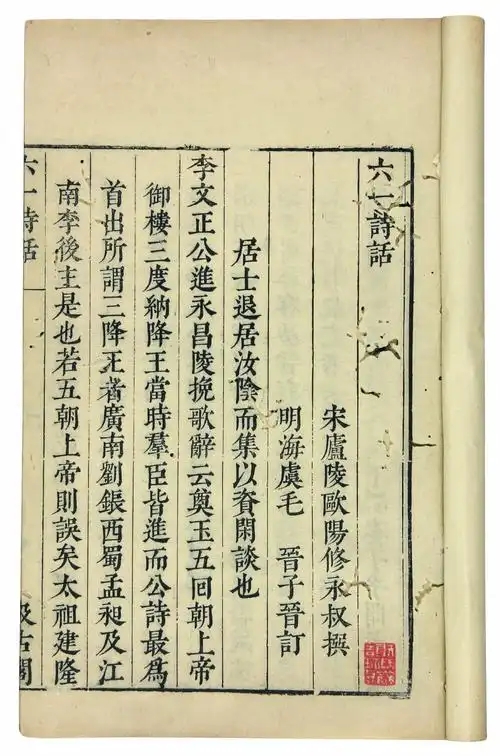 六一詩話
宋廬陵歐陽修永叔撰
明海虞毛 晉子晉訂
居士退居汝隂而集以資閑談也
李文正公進永昌陵挽歌辭云奠玉五囘朝上帝
御樓三度納降王當時羣臣皆進而公詩最爲
首出所謂三降王者廣南劉鋹西蜀孟昶及江
南李後主是也若五朝上帝則誤矣太祖建隆
六一詩話
汲古閣